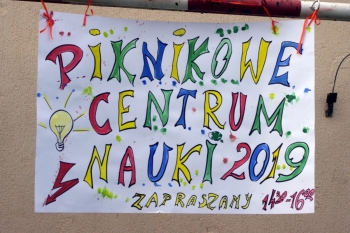 PIKNIKOWE
CENTRUM
NAUKI 2019
ZAPRASZAMY 14³⁰-16⁰⁰